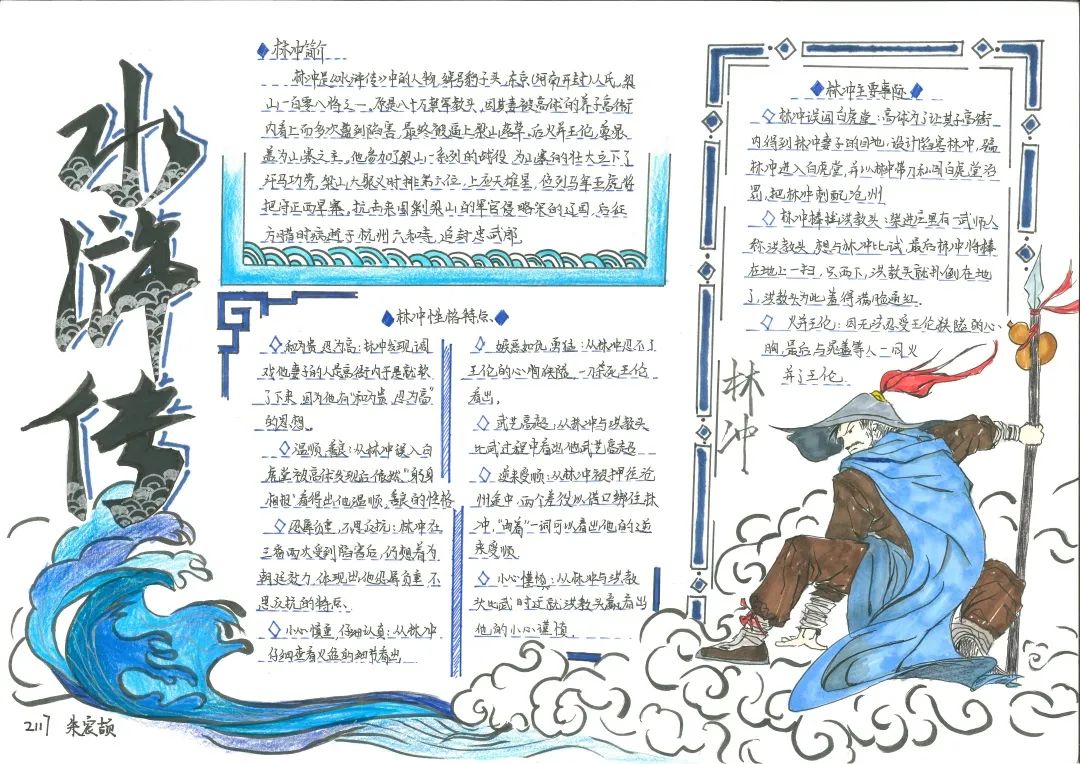 水浒传
林冲简介
林冲是《水浒传》中的人物,绰号豹子头,东京(河南开封)人氏,梁
山一百零八将之一。原是八十万禁军教头,因其妻被高俅的养子高衙
内看上而多次遭到陷害,最终被逼上梁山落草。后火并王伦,尊晁
盖为山寨之主。他参加了梁山一系列的战役,为山寨的壮大立下了
汗马功劳。梁山大聚义时排第六位,上应天雄星,位列马军五虎将
把守正西旱寨。抗击来围剿梁山的军官侵略宋的辽国,后征
方腊时病逝于杭州六和寺,追封忠武郎
林冲性格特点
和为贵,忍为高:林冲发现调
戏他妻子的人是高衙内于是就软
了下来,因为他有“和为贵,忍为高”
的思想。
温顺、善良:从林冲误入白
虎堂被高俅发现后依然“躬身
看得出他温顺、善良的性格
忍辱负重,不思反抗:林冲在
三番两次受到陷害后,仍想着为
朝廷效力,体现出他忍辱负重,不
思反抗的特点。
小心慎重,仔细认真:从林冲
仔细查看火盆的细节看出
嫉恶如仇,勇猛:从林冲忍不了
王伦的心胸狭隘,一刀杀死王伦
看出。
武艺高超:从林冲与洪教头
比武过程中看出他武艺高超
逆来受顺:从林冲被押往沧
州途中,两个差役以借口绑住林
冲,一词可以看出他的逆
来受顺
小心谨慎:从林冲与洪教
头比武时还就洪教头看出
他的小心谨慎。
林冲主要事际
林冲误闯白虎堂:高俅为了让其子高衙
内得到林冲妻子的目地,设计陷害林冲,骗
林冲进入白虎堂,并以林冲带刀私闯白虎堂治
罚,把林冲刺配沧州
林冲棒挫洪教头:柴进庄里有一武师人
称洪教头,想与林冲比试,最后林冲将棒
在地上一扫,只两下,洪教头就扑倒在地
了,洪教头为此羞得满脸通红。
火并王伦:因无法忍受王伦狭隘的心
胸,最后与晁盖等人一同火
并了王伦.
林冲
2117 朱宸颉